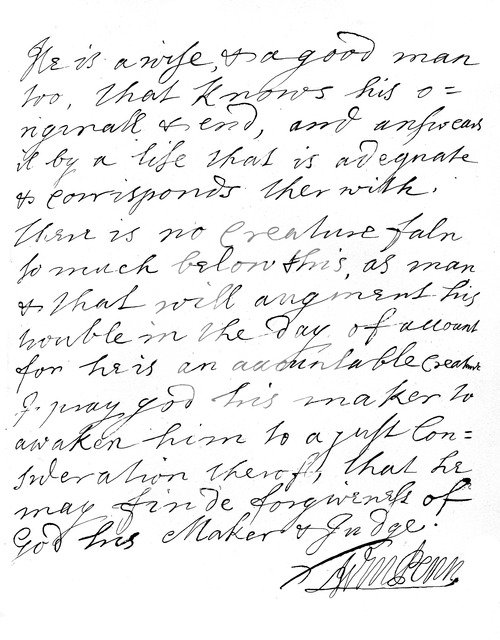 He is a wise, & a good man
too, that knows his o=
riginall & end, and answears
it by a life that is adequate
& corrisponds therwith.
there is no creature faln
so much below this, as man
& that will augment his
trouble in the day of account
for he is an accountable creature
I pray god his maker to
awaken him to a just Con=
sideration therof, that he
may finde forgiveness of
God his Maker & Judge.
Wm Penn